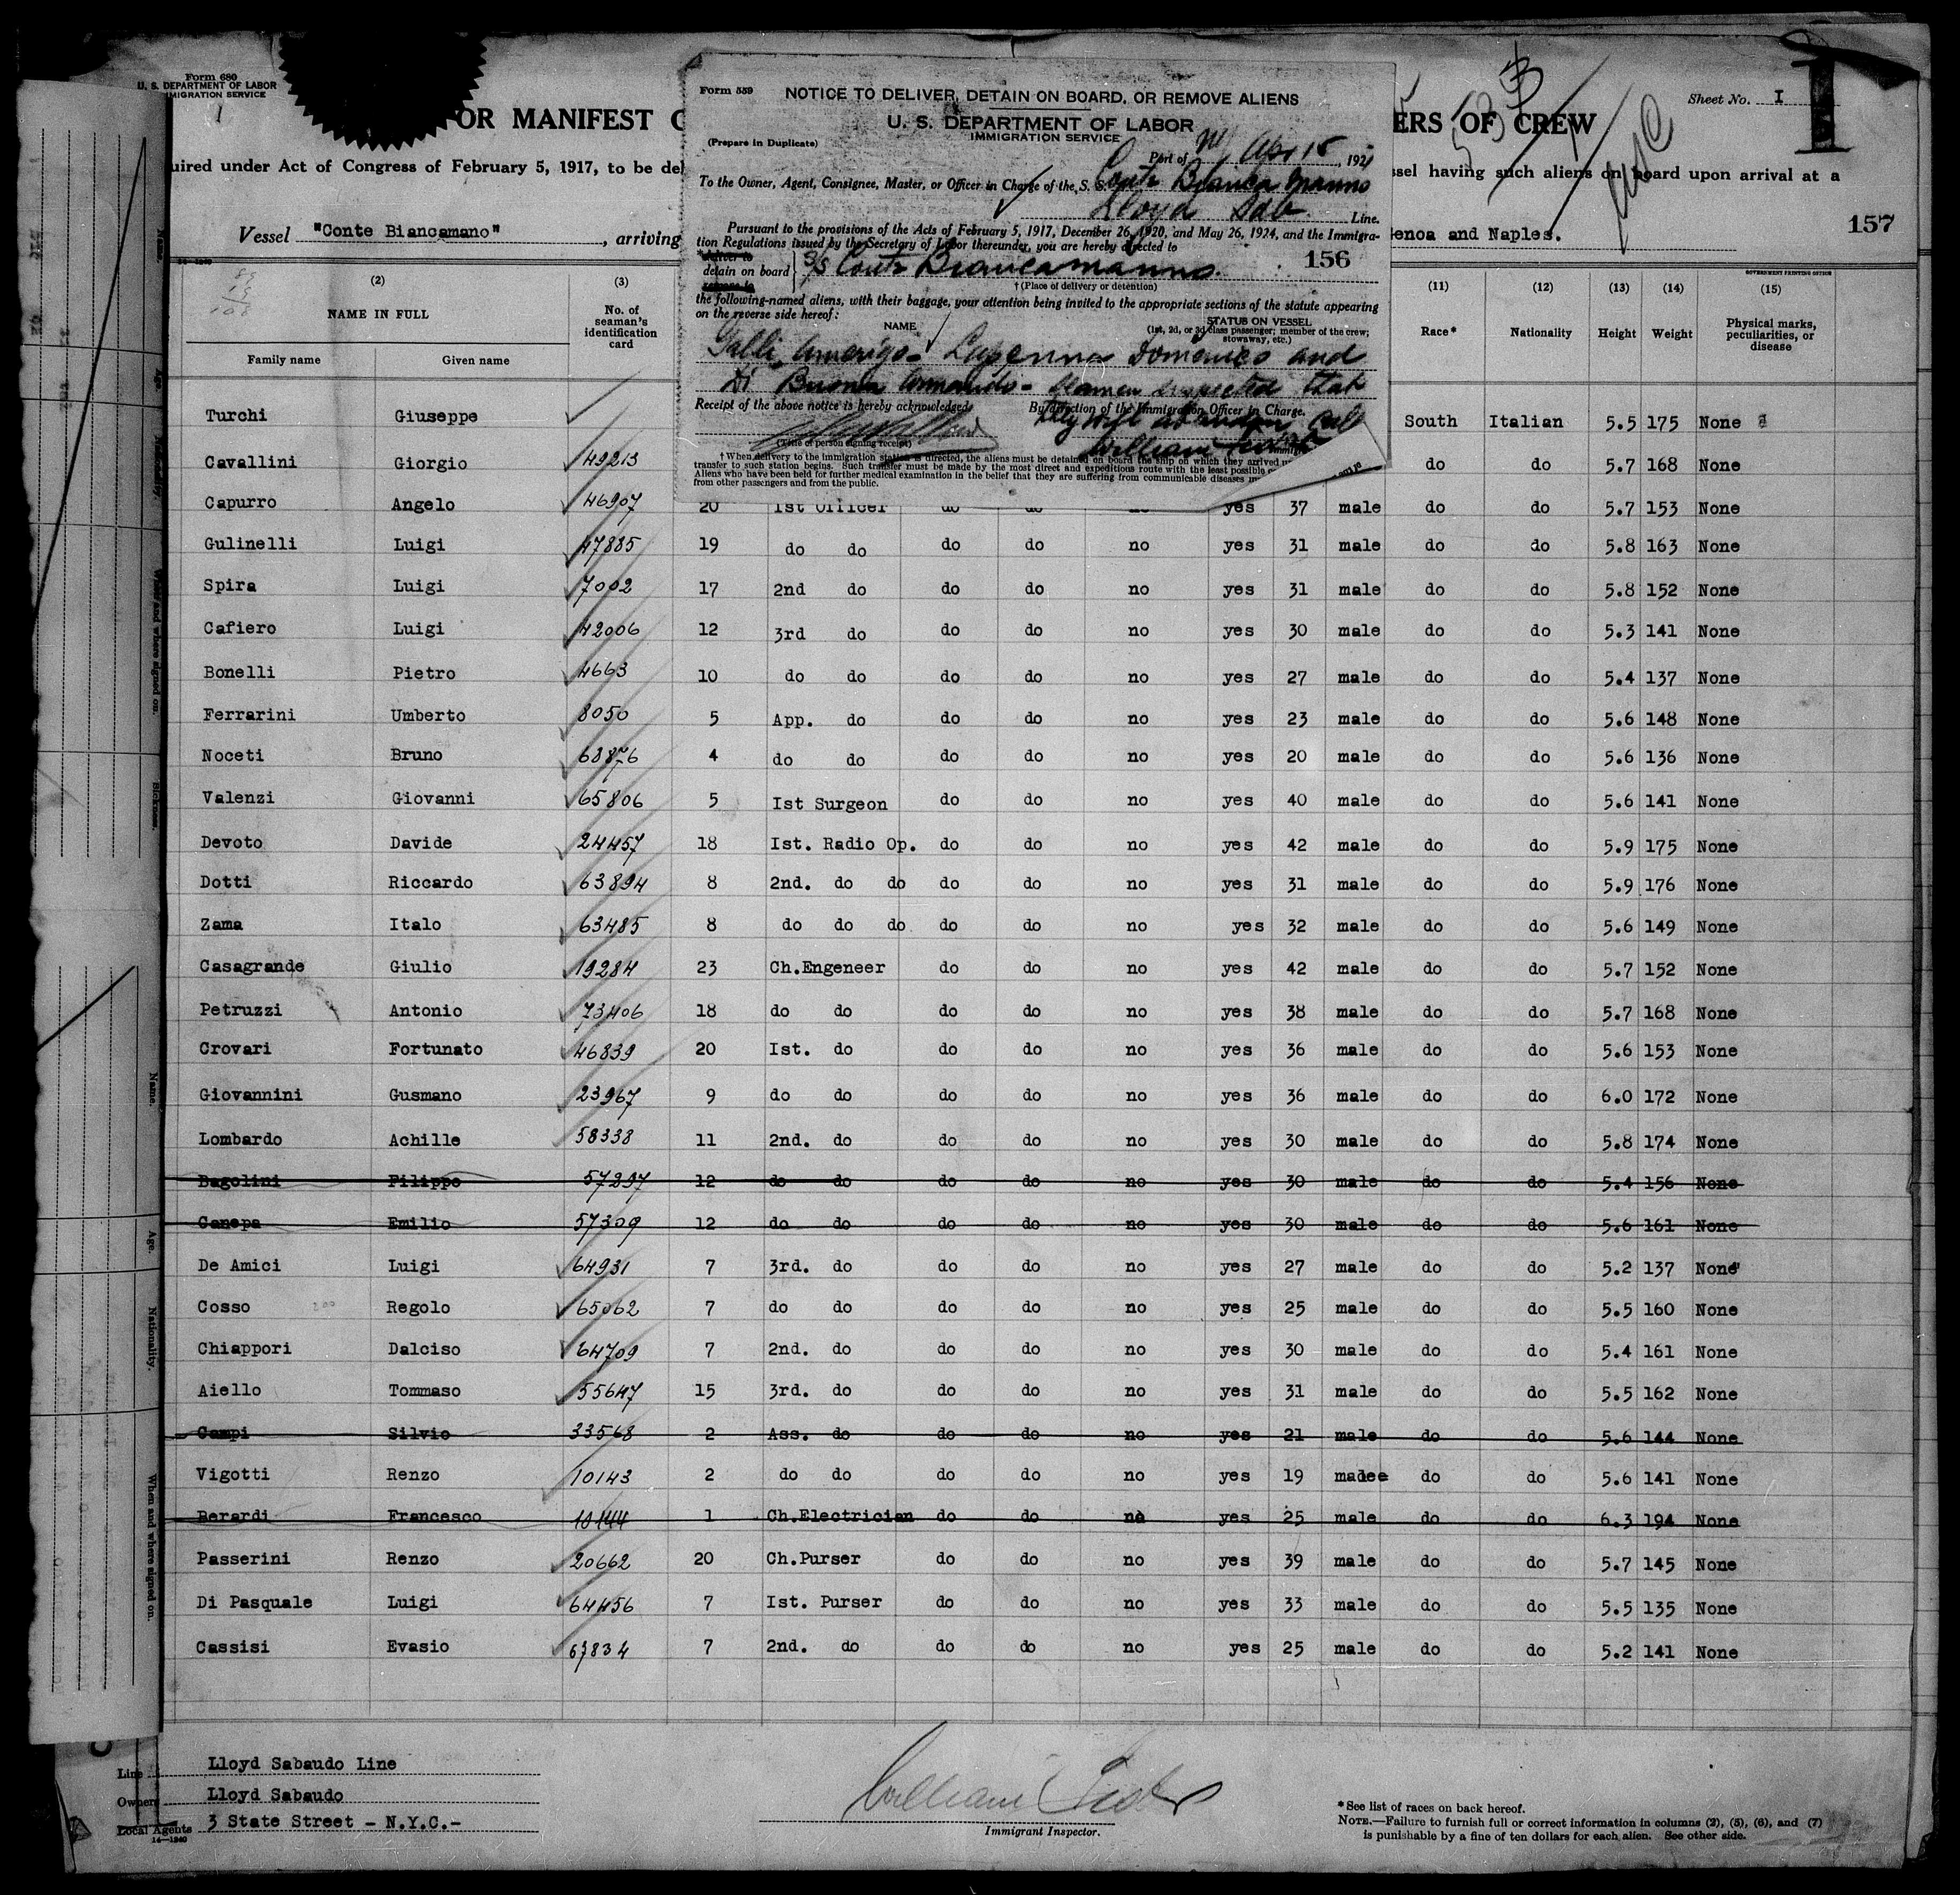 Form 680
U. S. DEPARTMENT OF LABOR
IMMIGRATION SERVICE
OR MANIFEST O
ERS OF CREW
Sheet No. I
1
uired under Act of Congress of February 5, 1917, to be del
ssel having such aliens on board upon arrival at a
Vessel "Conte Biancamano", arriving
enoa and Naples.
157
Form 559
NOTICE TO DELIVER, DETAIN ON BOARD, OR REMOVE ALIENS
U. S. DEPARTMENT OF LABOR
IMMIGRATION SERVICE
(Prepare in Duplicate)
Port of NY Apr 15, 192
To the Owner, Agent, Consignee, Master, or Officer in Charge of the S. S. Conte Bianca manno
Lloyd Sab. Line.
Pursuant to the provisions of the Acts of February 5, 1917, December 26, 1920, and May 26, 1924, and the Immigra-
tion Regulations issued by the Secretary of Labor thereunder, you are hereby directed to
deliver to
detain on board } S/S Conte Biancamanno. 156
remove to
† (Place of delivery or detention)
the following-named aliens, with their baggage, your attention being invited to the appropriate sections of the statute appearing
on the reverse side hereof:
NAME STATUS ON VESSEL
(1st, 2d, or 3d class passenger; member of the crew;
stowaway, etc.)
Galli Amerigo - Domenico and
Di Armando - Seamen suspected that
Receipt of the above notice is hereby acknowledged. By direction of the Immigration Officer in Charge.
they will abandon
William
(Title of person signing receipt)
† When delivery to the immigration station is directed, the aliens must be detained on board the ship on which they arrived
transfer to such station begins. Such transfer must be made by the most direct and expeditious route with the least possible
Aliens who have been held for further medical examination in the belief that they are suffering from communicable diseases
from other passengers and from the public.
(2) (3) (11) (12) (13) (14) (15)
NAME IN FULL No. of seaman's identification card Race* Nationality Height Weight Physical marks, peculiarities, or disease
GOVERNMENT PRINTING OFFICE
Family name Given name
Turchi Giuseppe South Italian 5.5 175 None
Cavallini Giorgio 49213 do do 5.7 168 None
Capurro Angelo 46907 20 1st Officer do do no yes 37 male do do 5.7 153 None
Gulinelli Luigi 47885 19 do do do do no yes 31 male do do 5.8 163 None
Spira Luigi 7002 17 2nd do do do no yes 31 male do do 5.8 152 None
Cafiero Luigi 42006 12 3rd do do do no yes 30 male do do 5.3 141 None
Bonelli Pietro 4663 10 do do do do no yes 27 male do do 5.4 137 None
Ferrarini Umberto 8050 5 App. do do do no yes 23 male do do 5.6 148 None
Noceti Bruno 63876 4 do do do do no yes 20 male do do 5.6 136 None
Valenzi Giovanni 65806 5 Ist Surgeon do do no yes 40 male do do 5.6 141 None
Devoto Davide 24457 18 Ist. Radio Op. do do no yes 42 male do do 5.9 175 None
Dotti Riccardo 63894 8 2nd. do do do do no yes 31 male do do 5.9 176 None
Zama Italo 63485 8 do do do do do no yes 32 male do do 5.6 149 None
Casagrande Giulio 19284 23 Ch.Engeneer do do no yes 42 male do do 5.7 152 None
Petruzzi Antonio 73406 18 do do do do no yes 38 male do do 5.7 168 None
Crovari Fortunato 46839 20 Ist. do do do no yes 36 male do do 5.6 153 None
Giovannini Gusmano 23967 9 do do do do no yes 36 male do do 6.0 172 None
Lombardo Achille 58338 11 2nd. do do do no yes 30 male do do 5.8 174 None
Bagolini Filippo 57297 12 do do do do no yes 30 male do do 5.4 156 None
Canepa Emilio 57309 12 do do do do no yes 30 male do do 5.6 161 None
De Amici Luigi 64931 7 3rd. do do do no yes 27 male do do 5.2 137 None
Cosso Regolo 65062 7 do do do do no yes 25 male do do 5.5 160 None
Chiappori Dalciso 64709 7 2nd. do do do no yes 30 male do do 5.4 161 None
Aiello Tommaso 55647 15 3rd. do do do no yes 31 male do do 5.5 162 None
Campi Silvio 33568 2 Ass. do do do no yes 21 male do do 5.6 144 None
Vigotti Renzo 10143 2 do do do do no yes 19 madee do do 5.6 141 None
Berardi Francesco 10144 1 Ch.Electrician do do no yes 25 male do do 6.3 194 None
Passerini Renzo 20662 20 Ch.Purser do do no yes 39 male do do 5.7 145 None
Di Pasquale Luigi 64456 7 Ist. Purser do do no yes 33 male do do 5.5 135 None
Cassisi Evasio 67834 7 2nd. do do do no yes 25 male do do 5.2 141 None
Line Lloyd Sabaudo Line
Owners Lloyd Sabaudo
Local Agents 3 State Street - N.Y.C.-
14-1240
William
Immigrant Inspector.
* See list of races on back hereof.
NOTE.—Failure to furnish full or correct information in columns (2), (5), (6), and (7)
is punishable by a fine of ten dollars for each alien. See other side.
Name.
Age.
Nationality.
When and where signed on.